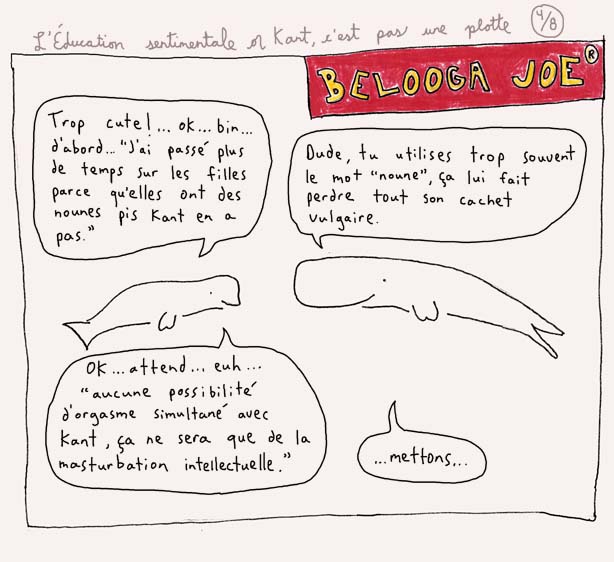 L'Éducation sentimentale or Kant, c'est pas une plotte 4/8
BELOOGA JOE ®
Trop cute!... ok... bin...
d'abord... "J'ai passé plus
de temps sur les filles
parce qu'elles ont des
nounes pis Kant en a
pas."
Dude, tu utilises trop souvent
le mot "noune", ça lui fait
perdre tout son cachet
vulgaire.
OK... attend... euh...
"aucune possibilité
d'orgasme simultané avec
Kant, ça ne sera que de la
masturbation intellectuelle."
...mettons...